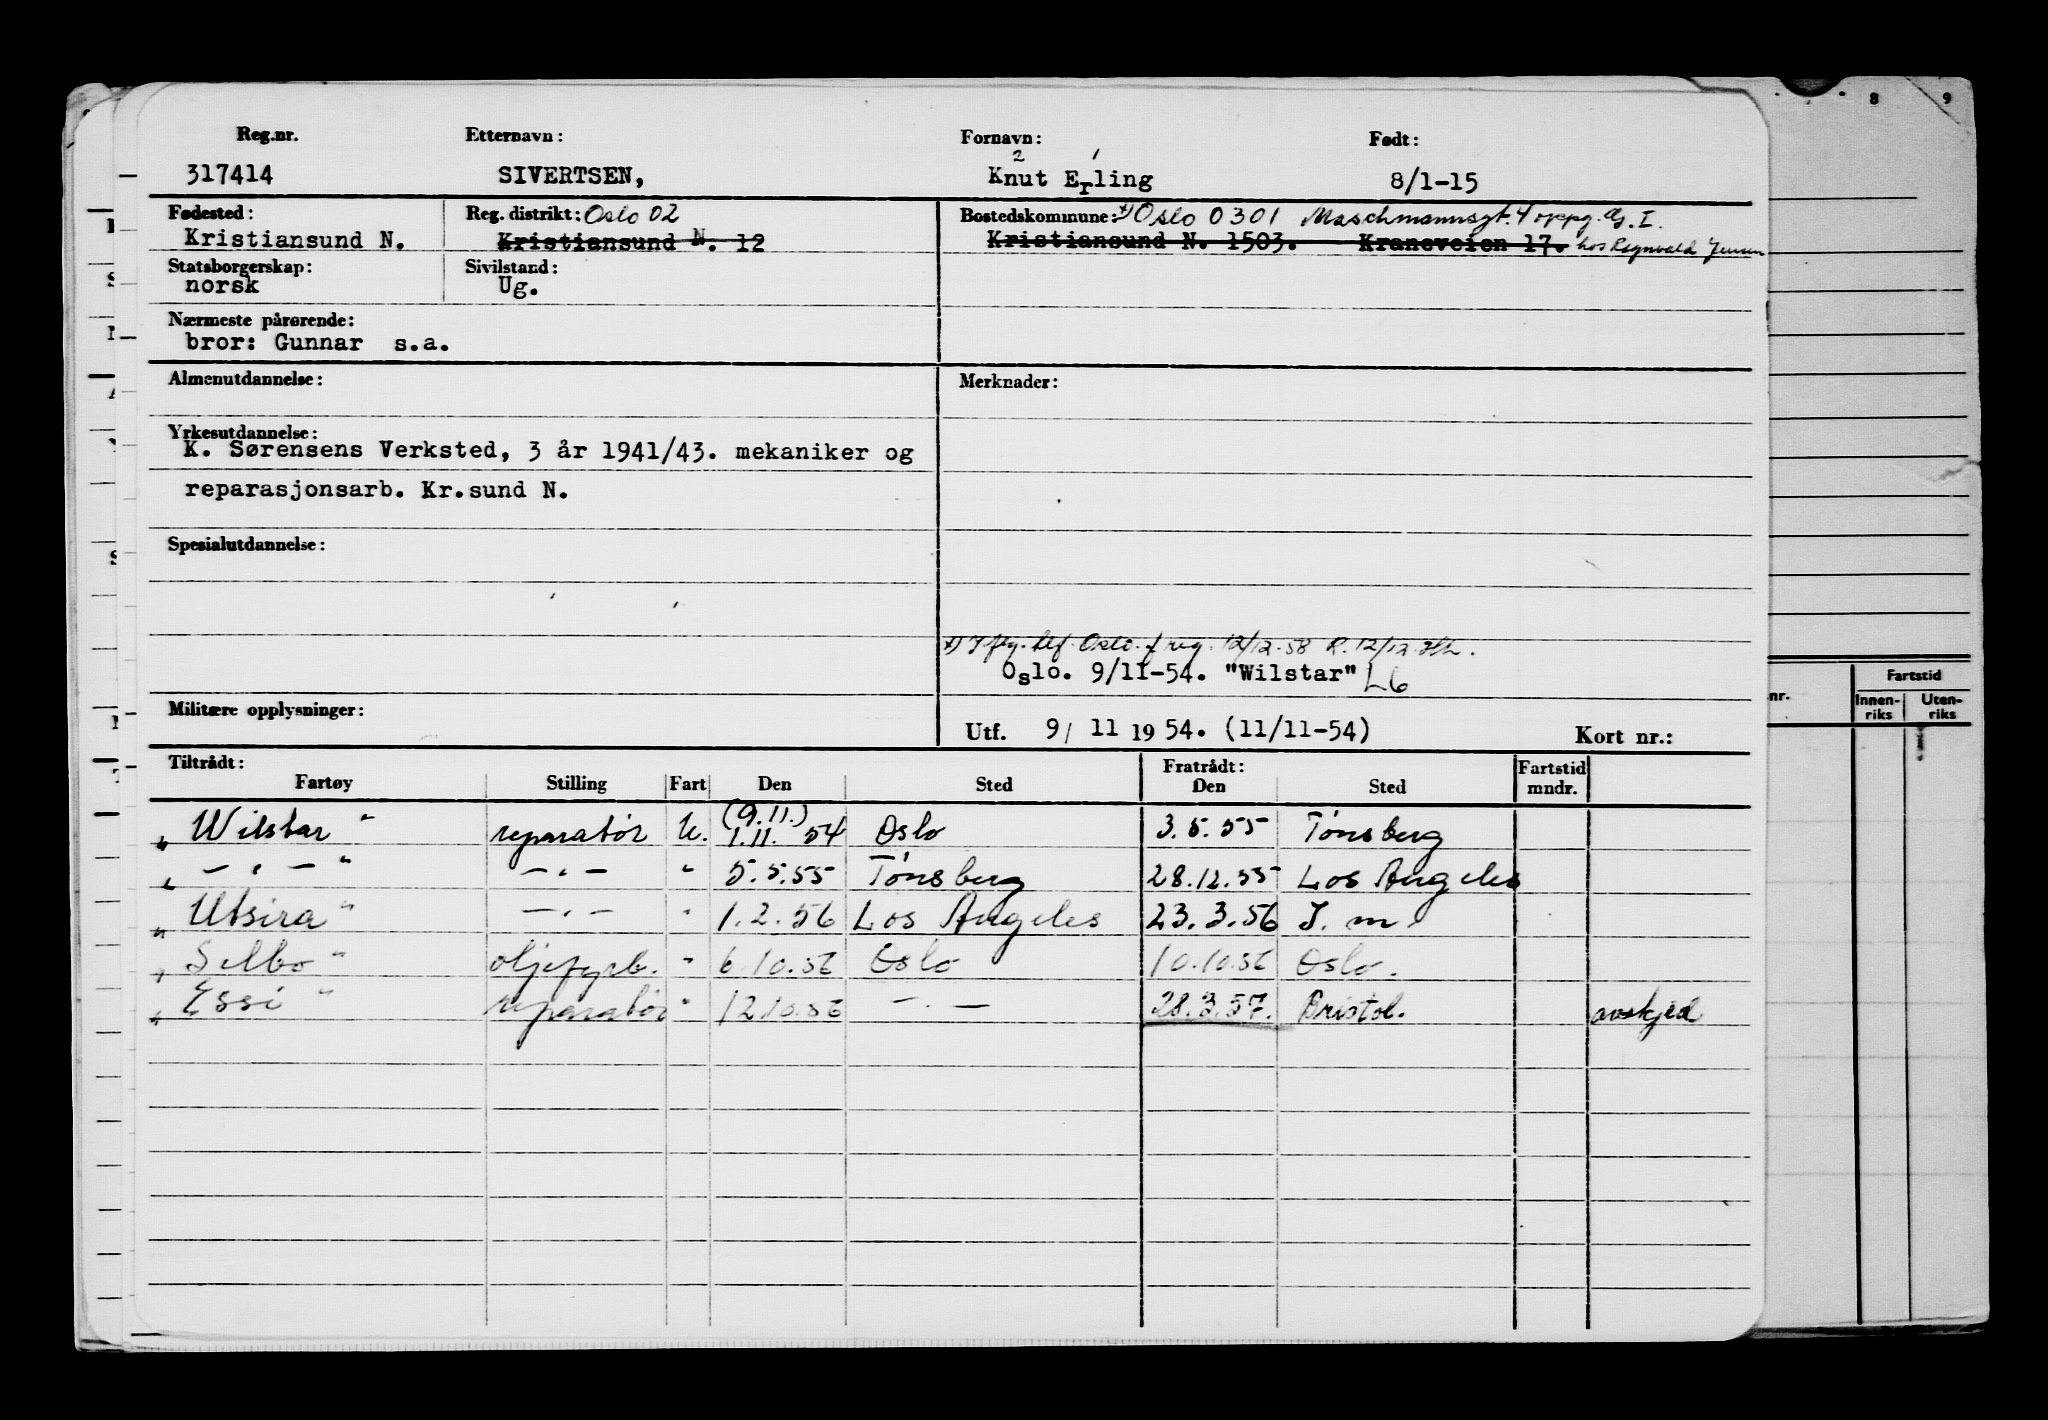 8 9
Reg.nr. Etternavn: Fornavn: Født:
2 1
317414 SIVERTSEN, Knut Erling 8/1-15
Fødested: Reg. distrikt: Oslo 02 Bostedskommune: x) Oslo 0301 Maschmannsgt. 4 oppg. I.
Kristiansund N. Kristiansund N. 12 Kristiansund N. 1503. Kranaveien 17. hos Ragnvald Jensen
Statsborgerskap: Sivilstand:
norsk Ug.
Nærmeste pårørende:
bror: Gunnar s.a.
Almenutdannelse: Merknader:
Yrkesutdannelse:
K. Sørensens Verksted, 3 år 1941/43. mekaniker og
reparasjonsarb. Kr.sund N.
Spesialutdannelse:
x) Oslo. 12/12-58 R. 12/12
Oslo. 9/11-54. "Wilstar" L6
Fartstid
nr. Innen-riks Uten-riks
Militære opplysninger: Utf. 9/ 11 19 54. (11/11-54) Kort nr.:
Tiltrådt: Fratrådt: Fartstid
Fartøy Stilling Fart Den Sted Den Sted mndr.
(9.11.)
„ Wilstar " reparatør U. 1.11. 54 Oslo 3.5.55 Tønsberg
„ — „ — " — „ — " 5.5.55 Tønsberg 28.12.55 Los Angeles
„ Utsira " — „ — " 1.2.56 Los Angeles 23.3.56 I. m.
„ Selbo " oljefyrb. " 6.10.56 Oslo 10.10.56 Oslo.
„ Essi " reparatør " 12.10.56 — „ — 28.3.57. Bristol. avskjed